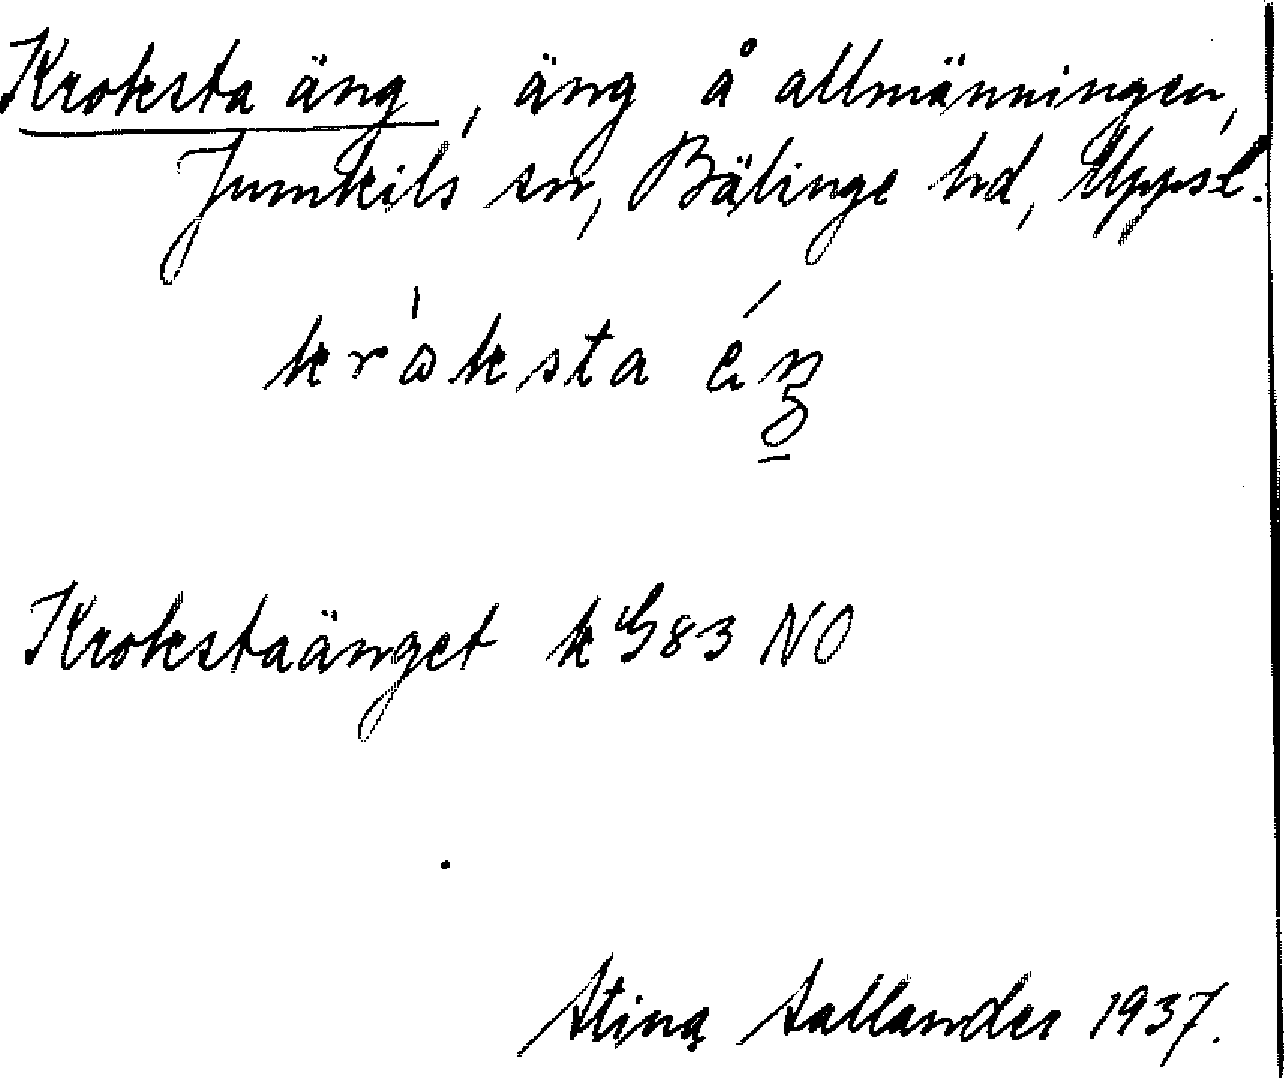 Kroksta äng, äng å allmänningen,
Jumkils sn, Bälinge hd, Uppsl.
kroksta
Krokstaänget k G83 NO
Stina Sallander 1937.